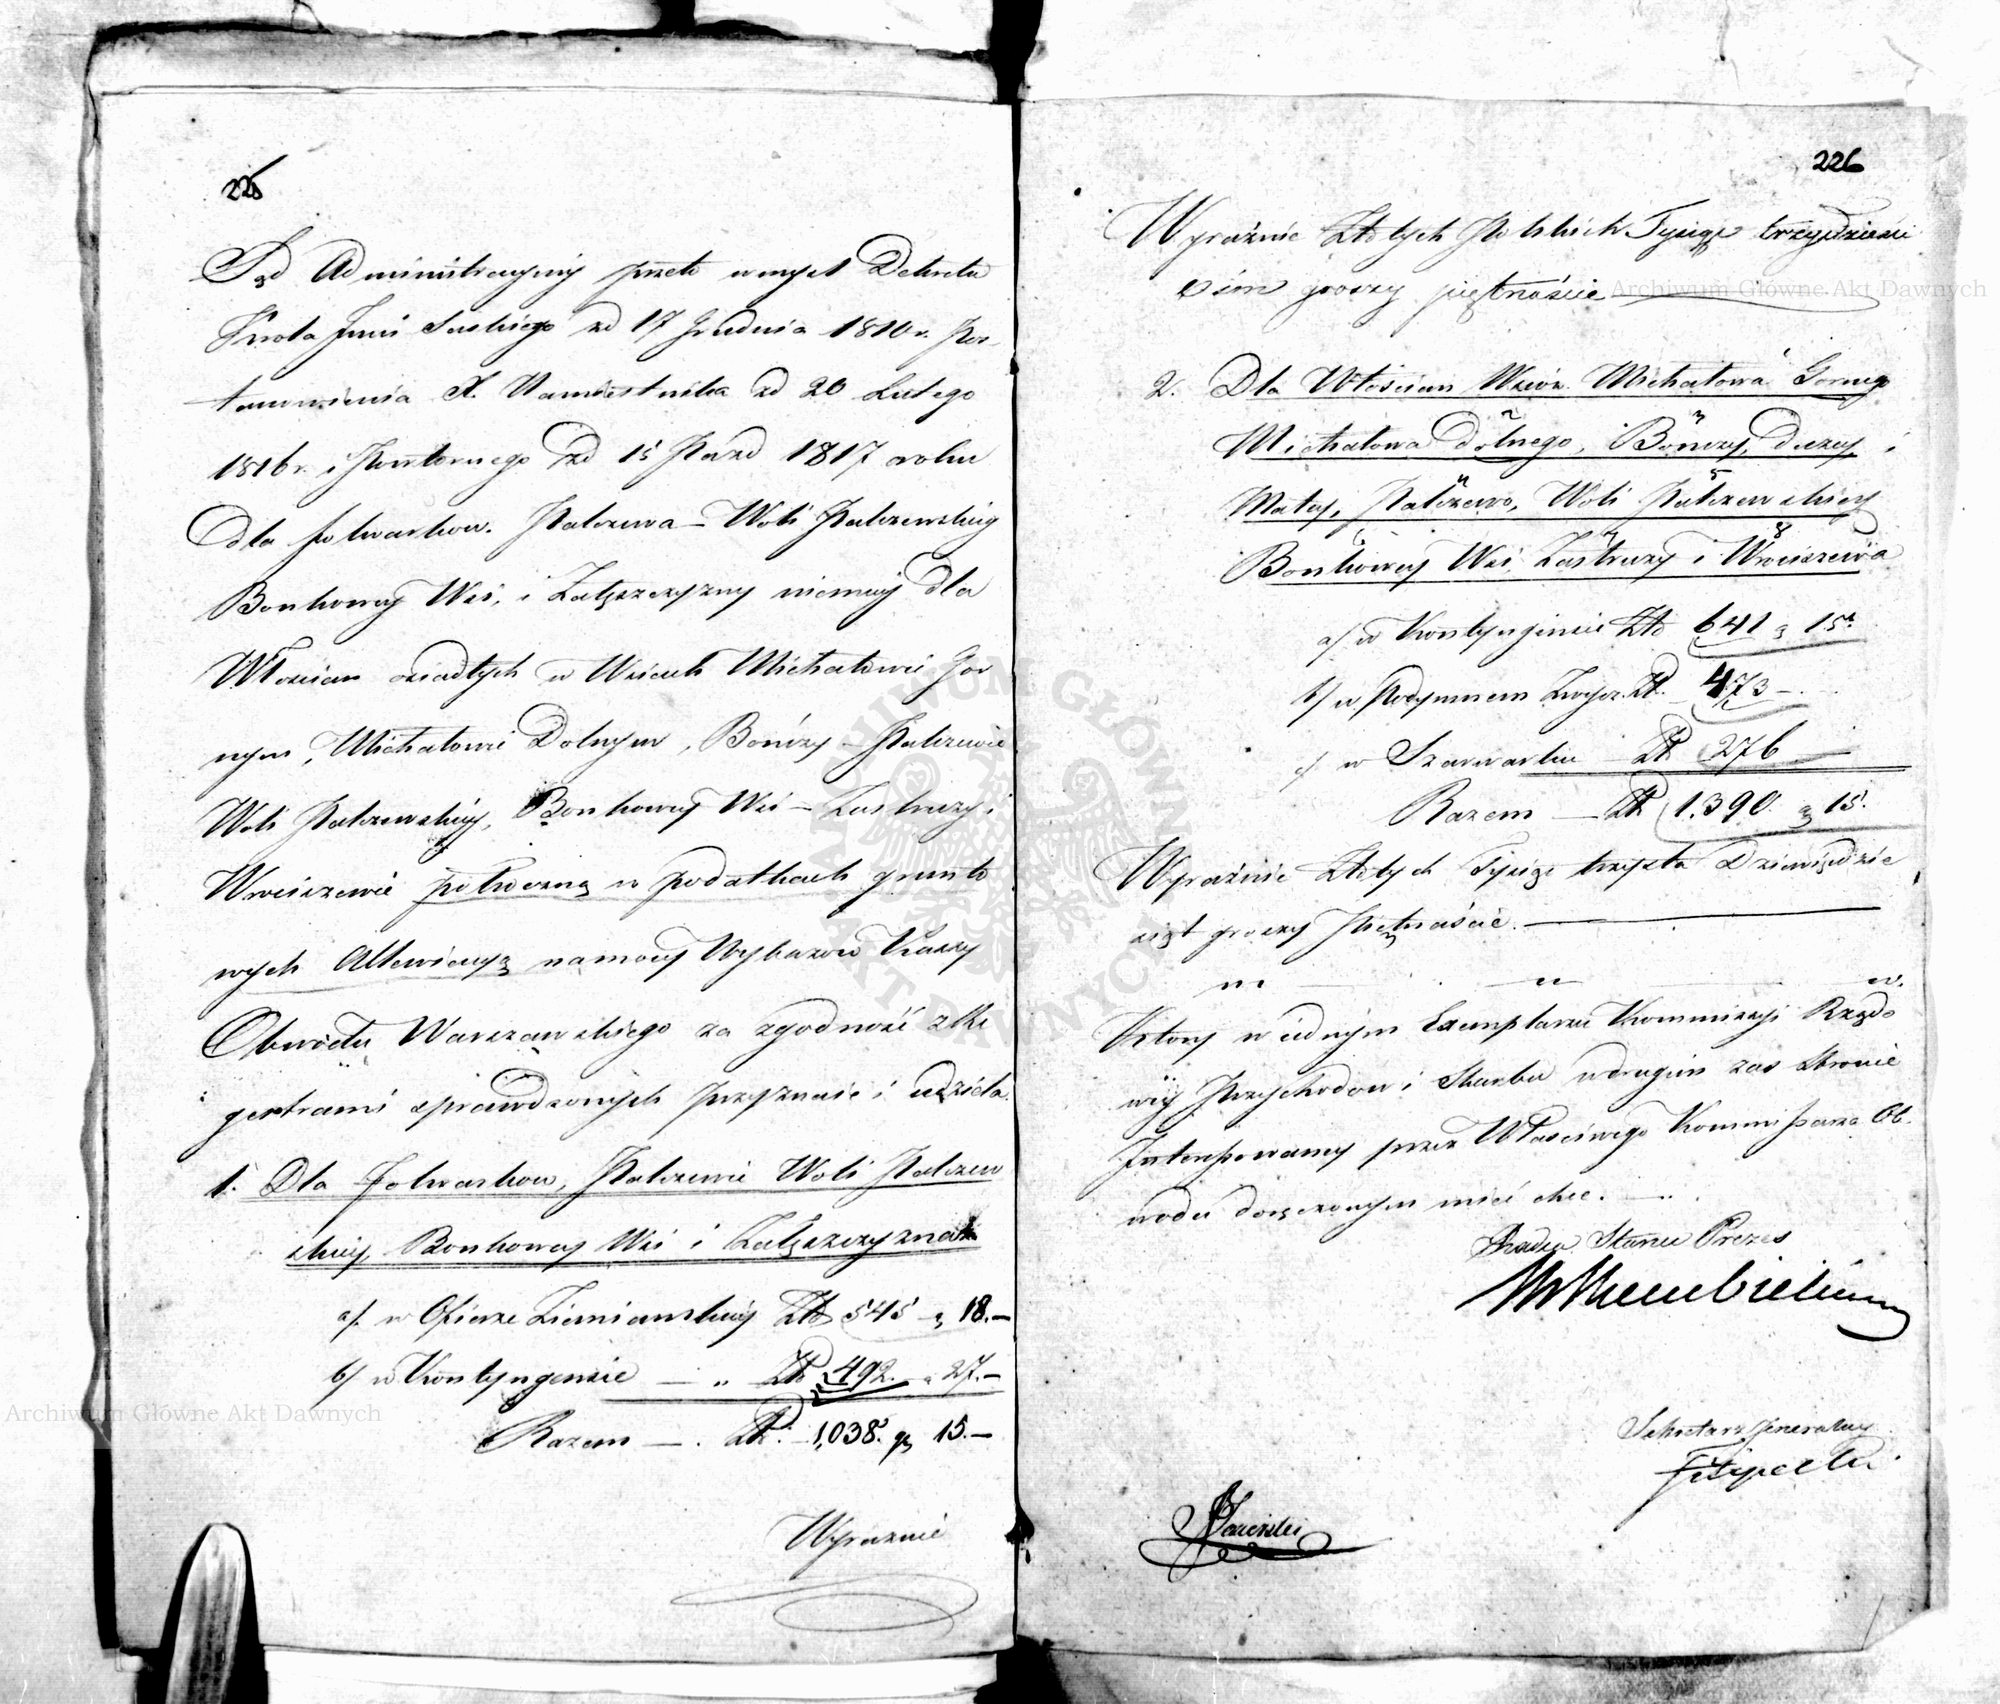 225
Sąd Administracyiny przeto wmysl Dekretu
Króla Jmci Saskiego od 17 Grudnia 1810 r. Pos-
tanowienia X. Namiestnika od 20 Lutego
1816 r. i Powtornego od 15 Pazd 1817 roku
dla folwarkow. Palczewa – Woli Palczewskiey
Bonkowey Wsi, i Załęszczyzny niemniey dla
Włoscian osiadłych w Wsiach Michałowie Gor
nym, Michałowie Dolnym, Bończy – Palczewie
Woli Palczewskiey, Bonkowey Wsi – Zastruzy i
Wrociszewie pottroczną w podatkach grunto
wych Allewiacyą namocy Wykazow Kassy
Obwodu Warszawskiego za zgodność z Re
gestrami sprawdzonych przyznaie i udziela.
1. Dla Folwarkow, Palczewie Woli Palczew
skiey, Bonkowey Wsi i Załęszczyzna
a/. w Ofiarze Ziemianskiey Złł 545 g 18.–
b/ w Kontyngensie – „ Złł 492. „ 27.–
Razem – . Złł. – 1,038. gr 15.–
Wyraznie
226
Wyraźnie Złłotych Polskich Tysiąc trzydzieści
osim groszy piętnaście
2. Dla Włoscian Wsiow. Michałowa Gornego
Michałowa Dolnego, Bończy, Duzey i
Małey, Palczewo, Woli Palczewskiey
Bonkowey Wsi, Zastruzy i Wrociszewa
a/ w Kontyngensie Złł 641 g 15.
b/ w Podymnem Zwycz. Zł. 473 –
c/ w Szarwarku Zł 276 –
Razem – Zł 1.390. g 15.
Wyraźnie Złłotych Tysiąc trzysta Dziewięćdzie
siąt groszy Piętnaście. –
Ktory w iednym Exemplarzu Kommissyi Rządo
wey Przychodow i Skarbu wdrugim zas Stronie
Interessowaney przez Własciwego Kommissarza Ob.
wodu doręczonym mieć chce.
Radza Stanu Prezes
Sekretarz Jeneralny
Archiwum Główne Akt Dawnych
Archiwum Główne Akt Dawnych
ARCHIWUM GŁÓWNE AKT DAWNYCH